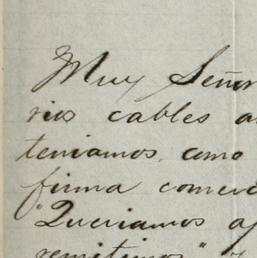 Muy Señor
rios cables a
teniamos, como
firma comerc
"Queriamos a
remitimos" y